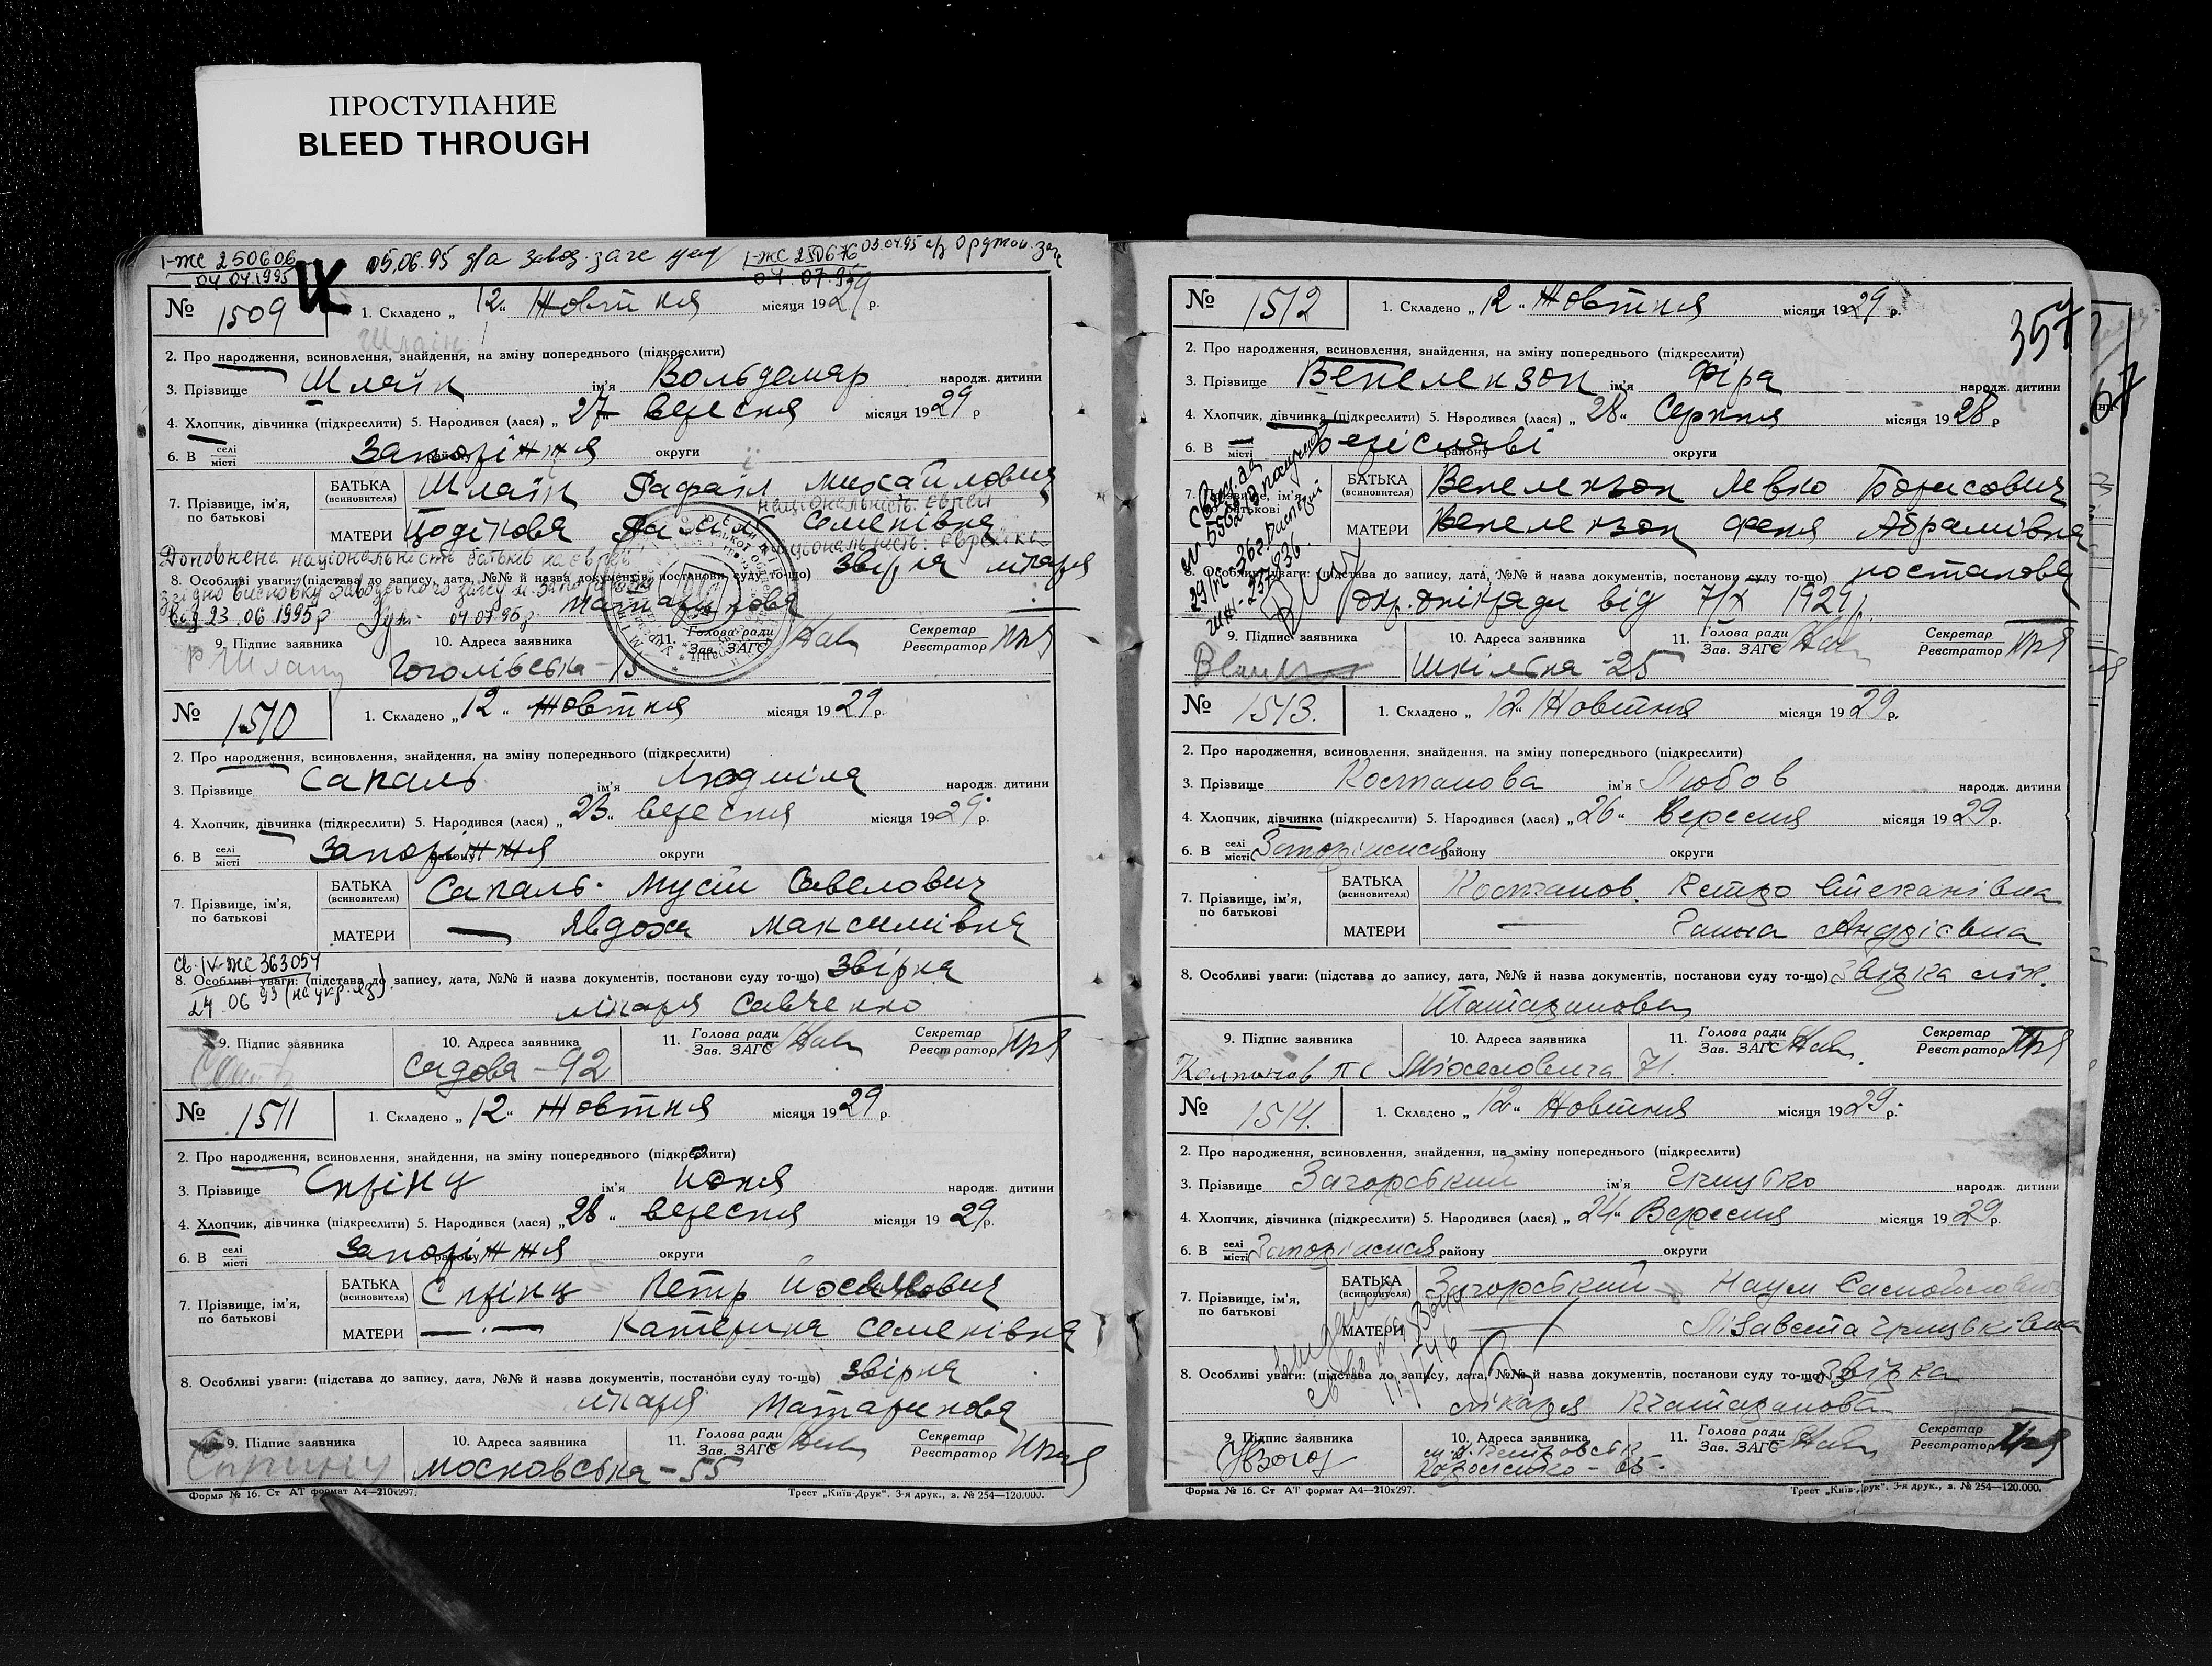 ПРОСТУПАНИЕ
BLEED THROUGH
І-ЖС 250606
04.04.1995
05.06.95 з/а завод. загс
І-ЖС 250676 03.04.95
04.07.95
№ 1509
1. Складено „12“ Жовтня місяця 1929 р.
Шлаїн
2. Про народження, всиновлення, знайдення, на зміну попереднього (підкреслити)
3. Прізвище Шлаїн ім'я Вольдемар народж. дитини
4. Хлопчик, дівчинка (підкреслити) 5. Народився (лася) „27“ вересня місяця 1929 р
6. В селі місті Запоріжжя району округи
7. Прізвище, ім'я, по батькові
БАТЬКА (всиновителя) Шлаїн Рафаїл Михайлович
національність: єврей
МАТЕРИ Семенівна
національність: єврейка
Доповнена національність батьків на євреїв
8. Особливі уваги: (підстава до запису, дата, №№ й назва документів, постанови суду то-що) Звірка лікаря
згідно висновку Заводського загсу м. Запоріжжя
Матаринова
від 23.06.1995р 04.07.95р
9. Підпис заявника 10. Адреса заявника 11. Голова ради Зав. ЗАГС Секретар Реєстратор
Гоголівська - 15
№ 1510
1. Складено „12“ Жовтня місяця 1929 р.
2. Про народження, всиновлення, знайдення, на зміну попереднього (підкреслити)
3. Прізвище Сапаль ім'я Людміла народж. дитини
4. Хлопчик, дівчинка (підкреслити) 5. Народився (лася) „23“ вересня місяця 1929 р.
6. В селі місті Запоріжжя району округи
7. Прізвище, ім'я, по батькові
БАТЬКА (всиновителя) Сапаль Мусій Савелович
МАТЕРИ — Явдоха Максимівна
св. IV-ЖС 363054
8. Особливі уваги: (підстава до запису, дата, №№ й назва документів, постанови суду то-що) Звірка
24.06.93 (на укр. яз)
лікаря Савченко
9. Підпис заявника 10. Адреса заявника 11. Голова ради Зав. ЗАГС Секретар Реєстратор
Садова - 92
№ 1511
1. Складено „12“ Жовтня місяця 1929 р.
2. Про народження, всиновлення, знайдення, на зміну попереднього (підкреслити)
3. Прізвище Спрінц ім'я народж. дитини
4. Хлопчик, дівчинка (підкреслити) 5. Народився (лася) „28“ вересня місяця 1929 р.
6. В селі місті Запоріжжя району округи
7. Прізвище, ім'я, по батькові
БАТЬКА (всиновителя) Спрінц Петр
МАТЕРИ —·— Катерина Семенівна
8. Особливі уваги: (підстава до запису, дата, №№ й назва документів, постанови суду то-що) Звірка
лікаря Матаринова
9. Підпис заявника 10. Адреса заявника 11. Голова ради Зав. ЗАГС Секретар Реєстратор
Московська - 55
Форма № 16. Ст АТ формат А4—210х297. Трест „Київ-Друк“. 3-я друк., з. № 254—120.000.
357
№ 1512
1. Складено „12“ Жовтня місяця 1929 р.
2. Про народження, всиновлення, знайдення, на зміну попереднього (підкреслити)
3. Прізвище Вепелензон ім'я Фіра народж. дитини
4. Хлопчик, дівчинка (підкреслити) 5. Народився (лася) „28“ Серпня місяця 1928 р
6. В селі місті Беріславі району округи
7. Прізвище, ім'я, по батькові
БАТЬКА (всиновителя) Вепелензон Левко Борисович
МАТЕРИ Вепелензон Феня Абрамівна
8. Особливі уваги: (підстава до запису, дата, №№ й назва документів, постанови суду то-що) постанова
від 7/X 1929 р.
9. Підпис заявника 10. Адреса заявника 11. Голова ради Зав. ЗАГС Секретар Реєстратор
Шкільна - 25
№ 1513.
1. Складено „12“ Жовтня місяця 1929 р.
2. Про народження, всиновлення, знайдення, на зміну попереднього (підкреслити)
3. Прізвище Костанова ім'я Любов народж. дитини
4. Хлопчик, дівчинка (підкреслити) 5. Народився (лася) „26“ Вересня місяця 1929 р.
6. В селі місті Запоріжжя району округи
7. Прізвище, ім'я, по батькові
БАТЬКА (всиновителя) Костанов Петро
МАТЕРИ — Ганна Андрієвна
8. Особливі уваги: (підстава до запису, дата, №№ й назва документів, постанови суду то-що) Звірка лік.
9. Підпис заявника 10. Адреса заявника 11. Голова ради Зав. ЗАГС Секретар Реєстратор
71.
№ 1514.
1. Складено „12“ Жовтня місяця 1929 р.
2. Про народження, всиновлення, знайдення, на зміну попереднього (підкреслити)
3. Прізвище Загорський ім'я Грицько народж. дитини
4. Хлопчик, дівчинка (підкреслити) 5. Народився (лася) „24“ Вересня місяця 1929 р.
6. В селі місті Запоріжжя району округи
7. Прізвище, ім'я, по батькові
БАТЬКА (всиновителя) Загорський Наум Самойлович
МАТЕРИ — Лізавета Грицьківна
8. Особливі уваги: (підстава до запису, дата, №№ й назва документів, постанови суду то-що) Звірка
лікаря
9. Підпис заявника 10. Адреса заявника 11. Голова ради Зав. ЗАГС Секретар Реєстратор
Форма № 16. Ст АТ формат А4—210х297. Трест „Київ-Друк“. 3-я друк., з. № 254—120.000.